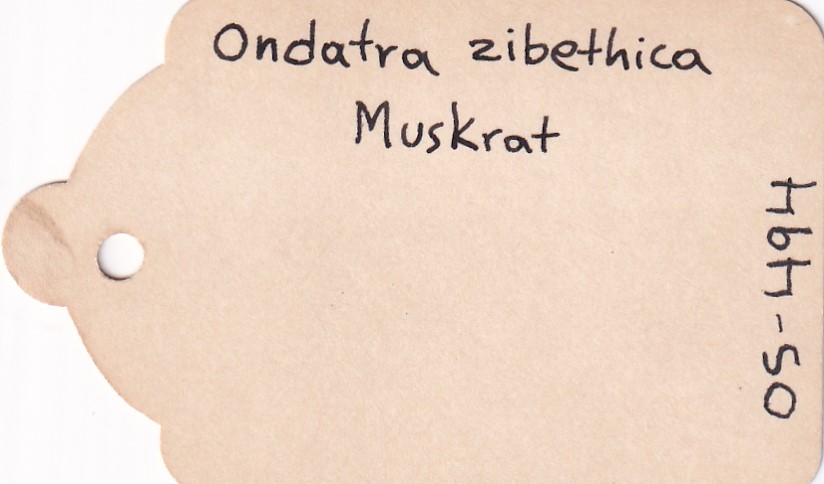 Ondatra zibethica
Muskrat
494-50